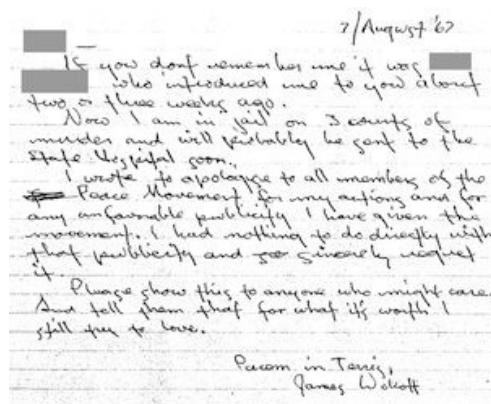 7/August '67
If you dont remember me it was
who introduced me to you about
two or three weeks ago.
Now I am in jail on 3 counts of
murder and will probably be sent to the
State Hospital soon.
I wrote to apologize to all members of the
Peace Movement for my actions and for
any unfavorable publicity I have given the
movement. I had nothing to do directly with
that publicity and sincerely regret
it.
Please show this to anyone who might care.
And tell them that for what it's worth I
still try to love.
Pacem in Terris,
James